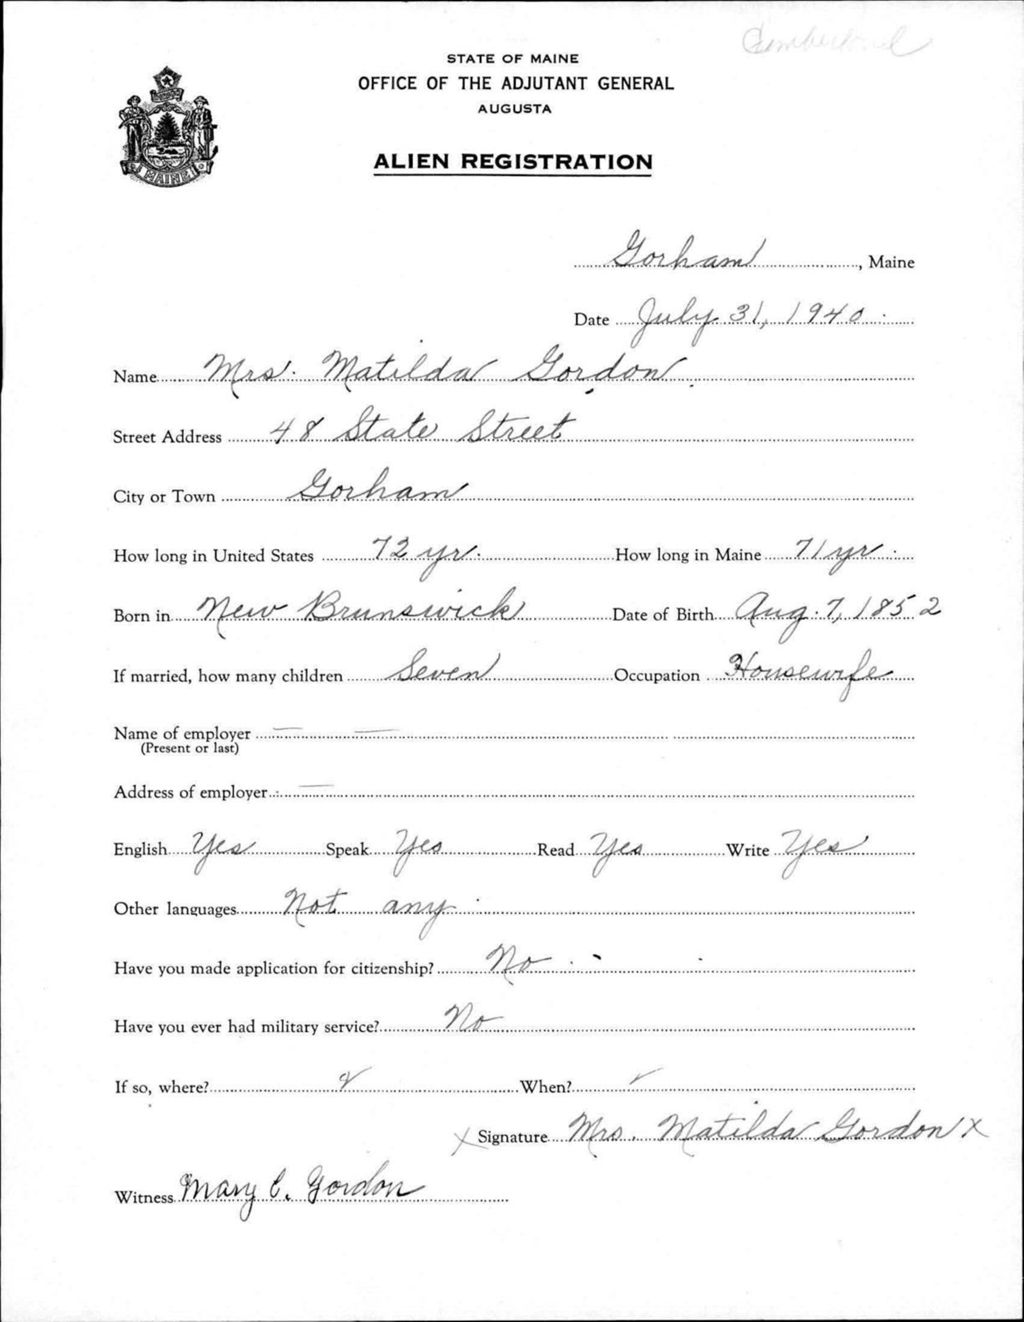 Cumberland
STATE OF MAINE
OFFICE OF THE ADJUTANT GENERAL
AUGUSTA
ALIEN REGISTRATION
MAINE
Gorham, Maine
Date July 31, 1940
Name Mrs. Matilda Gordon
Street Address 48 State Street
City or Town Gorham
How long in United States 72 yr. How long in Maine 71 yr.
Born in New Brunswick Date of Birth Aug. 7, 1852
If married, how many children Seven Occupation Housewife
Name of employer — —
(Present or last)
Address of employer —
English Yes Speak Yes Read Yes Write Yes
Other languages Not any
Have you made application for citizenship? No
Have you ever had military service? No
If so, where? ✓ When? ✓
X Signature Mrs. Matilda Gordon X
Witness Mary C. Gordon